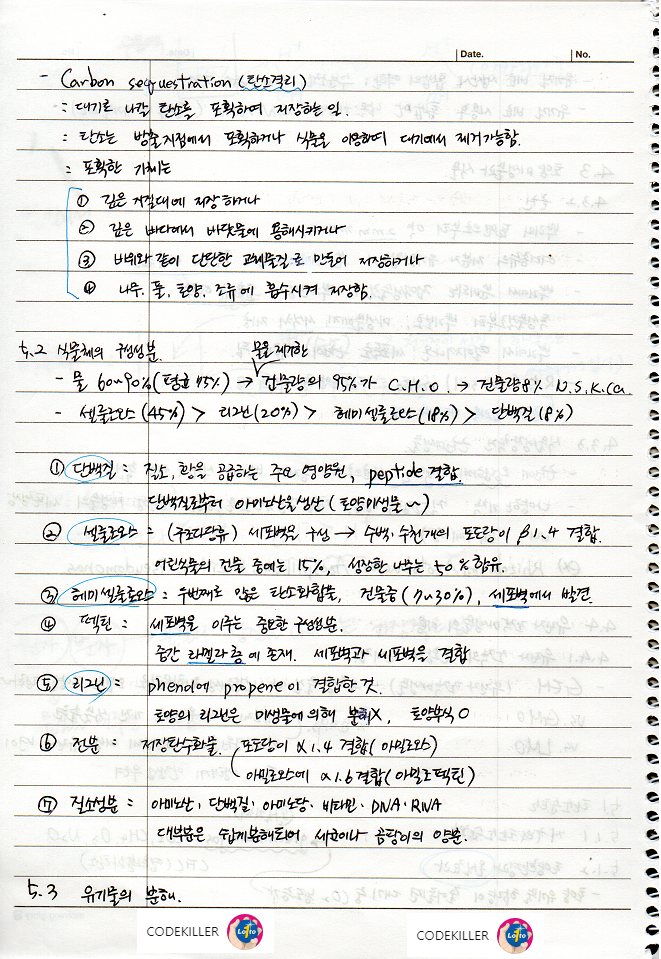 Date.
No.
- Carbon sequestration (탄소격리)
: 대기로 나갈 탄소를 포획하여 저장하는 일.
: 탄소는 방출지점에서 포획하거나 식물을 이용하여 대기에서 제거가능함.
: 포획한 기체는
① 깊은 저질대에 저장하거나
② 깊은 바다에서 바닷물에 용해시키거나
③ 바위와 같이 단단한 고체물질로 만들어 저장하거나
④ 나무, 풀, 토양, 조류에 흡수시켜 저장함.
5.2 식물체의 구성성분.
물을 제거한
- 물 60~90% (평균 75%) → 건물량의 95%가 C.H.O. → 건물량 8% N.S.K.Ca.
- 셀룰로오스 (45%) > 리그닌 (20%) > 헤미셀룰로오스 (18%) > 단백질 (8%)
① 단백질 : 질소, 황을 공급하는 주요 영양원, peptide 결합.
단백질로부터 아미노산을 생산 (토양미생물~)
② 셀룰로오스 : (구조다당류) 세포벽을 구성 → 수백, 수천개의 포도당이 β1.4 결합.
어린식물의 건물 중에는 15%, 성장한 나무는 50% 함유.
③ 헤미셀룰로오스 : 두번째로 많은 탄소화합물, 건물중 (7~30%), 세포벽에서 발견.
④ 펙틴 : 세포벽을 이루는 중요한 구성성분.
중간 라멜라층에 존재. 세포벽과 세포벽을 결합
⑤ 리그닌 : phenol에 propene이 결합한 것.
토양의 리그닌은 미생물에 의해 분해X, 토양부식 O
⑥ 전분 : 저장탄수화물. 포도당이 α1.4 결합 (아밀로오스)
아밀로오스에 α1.6 결합 (아밀로펙틴)
⑦ 질소성분 : 아미노산, 단백질, 아미노당, 비타민, DNA, RNA
대부분은 쉽게분해되어 세균이나 곰팡이의 양분.
5.3 유기물의 분해.
CODEKILLER Lotto
CODEKILLER Lotto